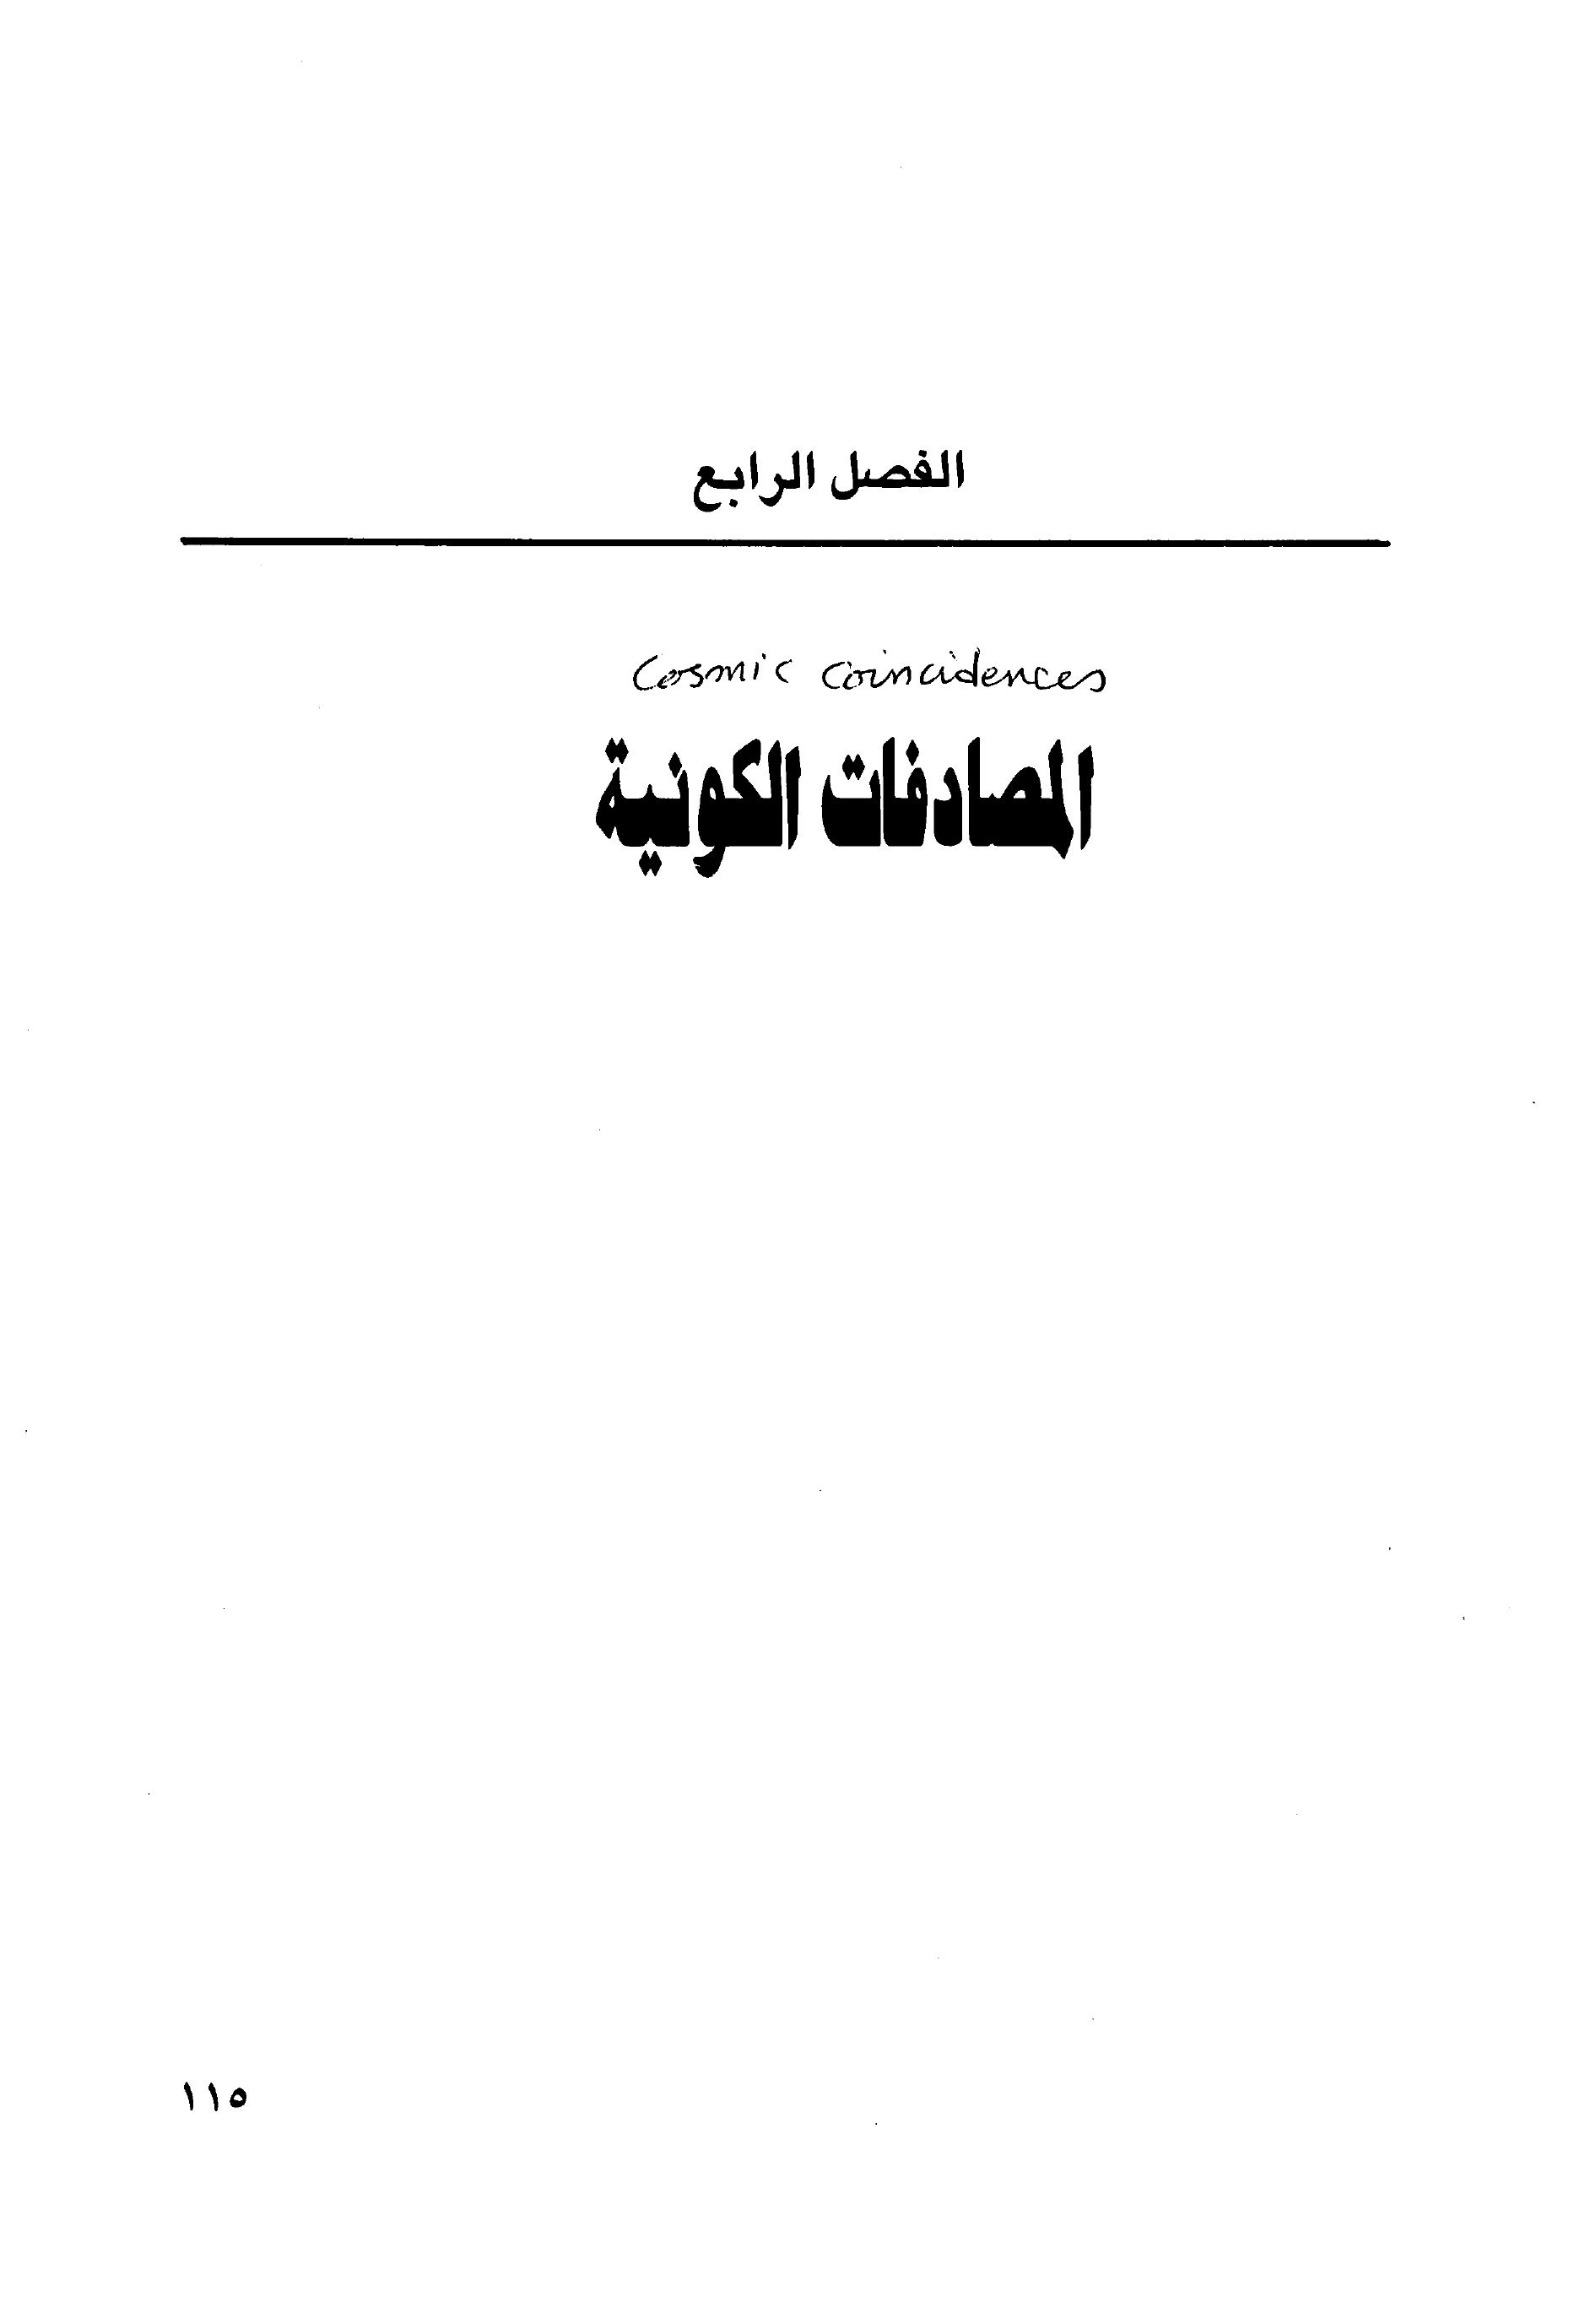 الفصل الرابع
Cosmic coincidences
المصادفات الكونية
١١٥